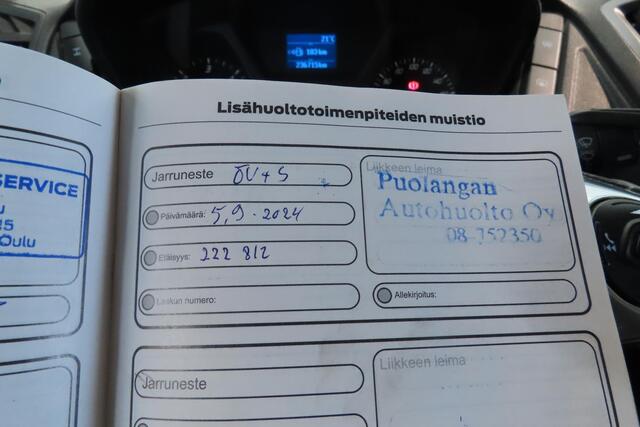 7.1°C
183 km
236715 km
Lisähuoltotoimenpiteiden muistio
SERVICE
Oulu
Jarruneste ÖV+S
Päivämäärä: 5,9.2024
Etäisyys: 222 812
Laskun numero:
Liikkeen leima
Puolangan
Autohuolto Oy
08-752350
Allekirjoitus:
Jarruneste
Liikkeen leima